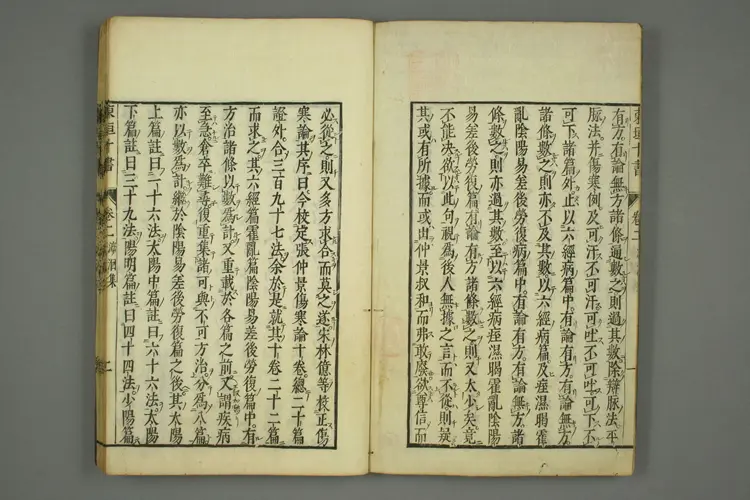 東垣十書 卷二
有方有論無方諸條通數之則過其數除辯脈法平
脈法并傷寒例及可汗不可汗可吐不可吐可下不
可下諸篇外止以六經病篇中有論有方有論無方
諸條數之則亦不及其數以六經病篇及痓濕暍霍
亂陰陽易差後勞復病篇中有論有方有論無方諸
條數之則亦過其數至以六經病痓濕暍霍亂陰陽
易差後勞復篇有論有方諸條數之則又太少矣竟
不能决欲以此句視爲後人無據之言而不從則疑
其或有所據而或出仲景叔和而弗敢廢欲尊信而
必從之則又多方求合而莫之遂宋林億等校正傷
寒論其序曰今校定張仲景傷寒論十卷總二十二篇
證外合三百九十七法余於是就其十卷二十二篇
而求之其六經篇霍亂篇陰陽易差後勞復篇中有
方治諸條以數爲計又重載於各篇之前又謂疾病
至急倉卒難尋復重集諸可與不可方治分爲八篇
亦以數爲計繼於陰陽易差後勞復篇之後其太陽
上篇註曰一十六法太陽中篇註曰六十六法太陽
下篇註曰三十九法陽明篇註曰四十四法少陽篇
東垣十書 卷二 集 二